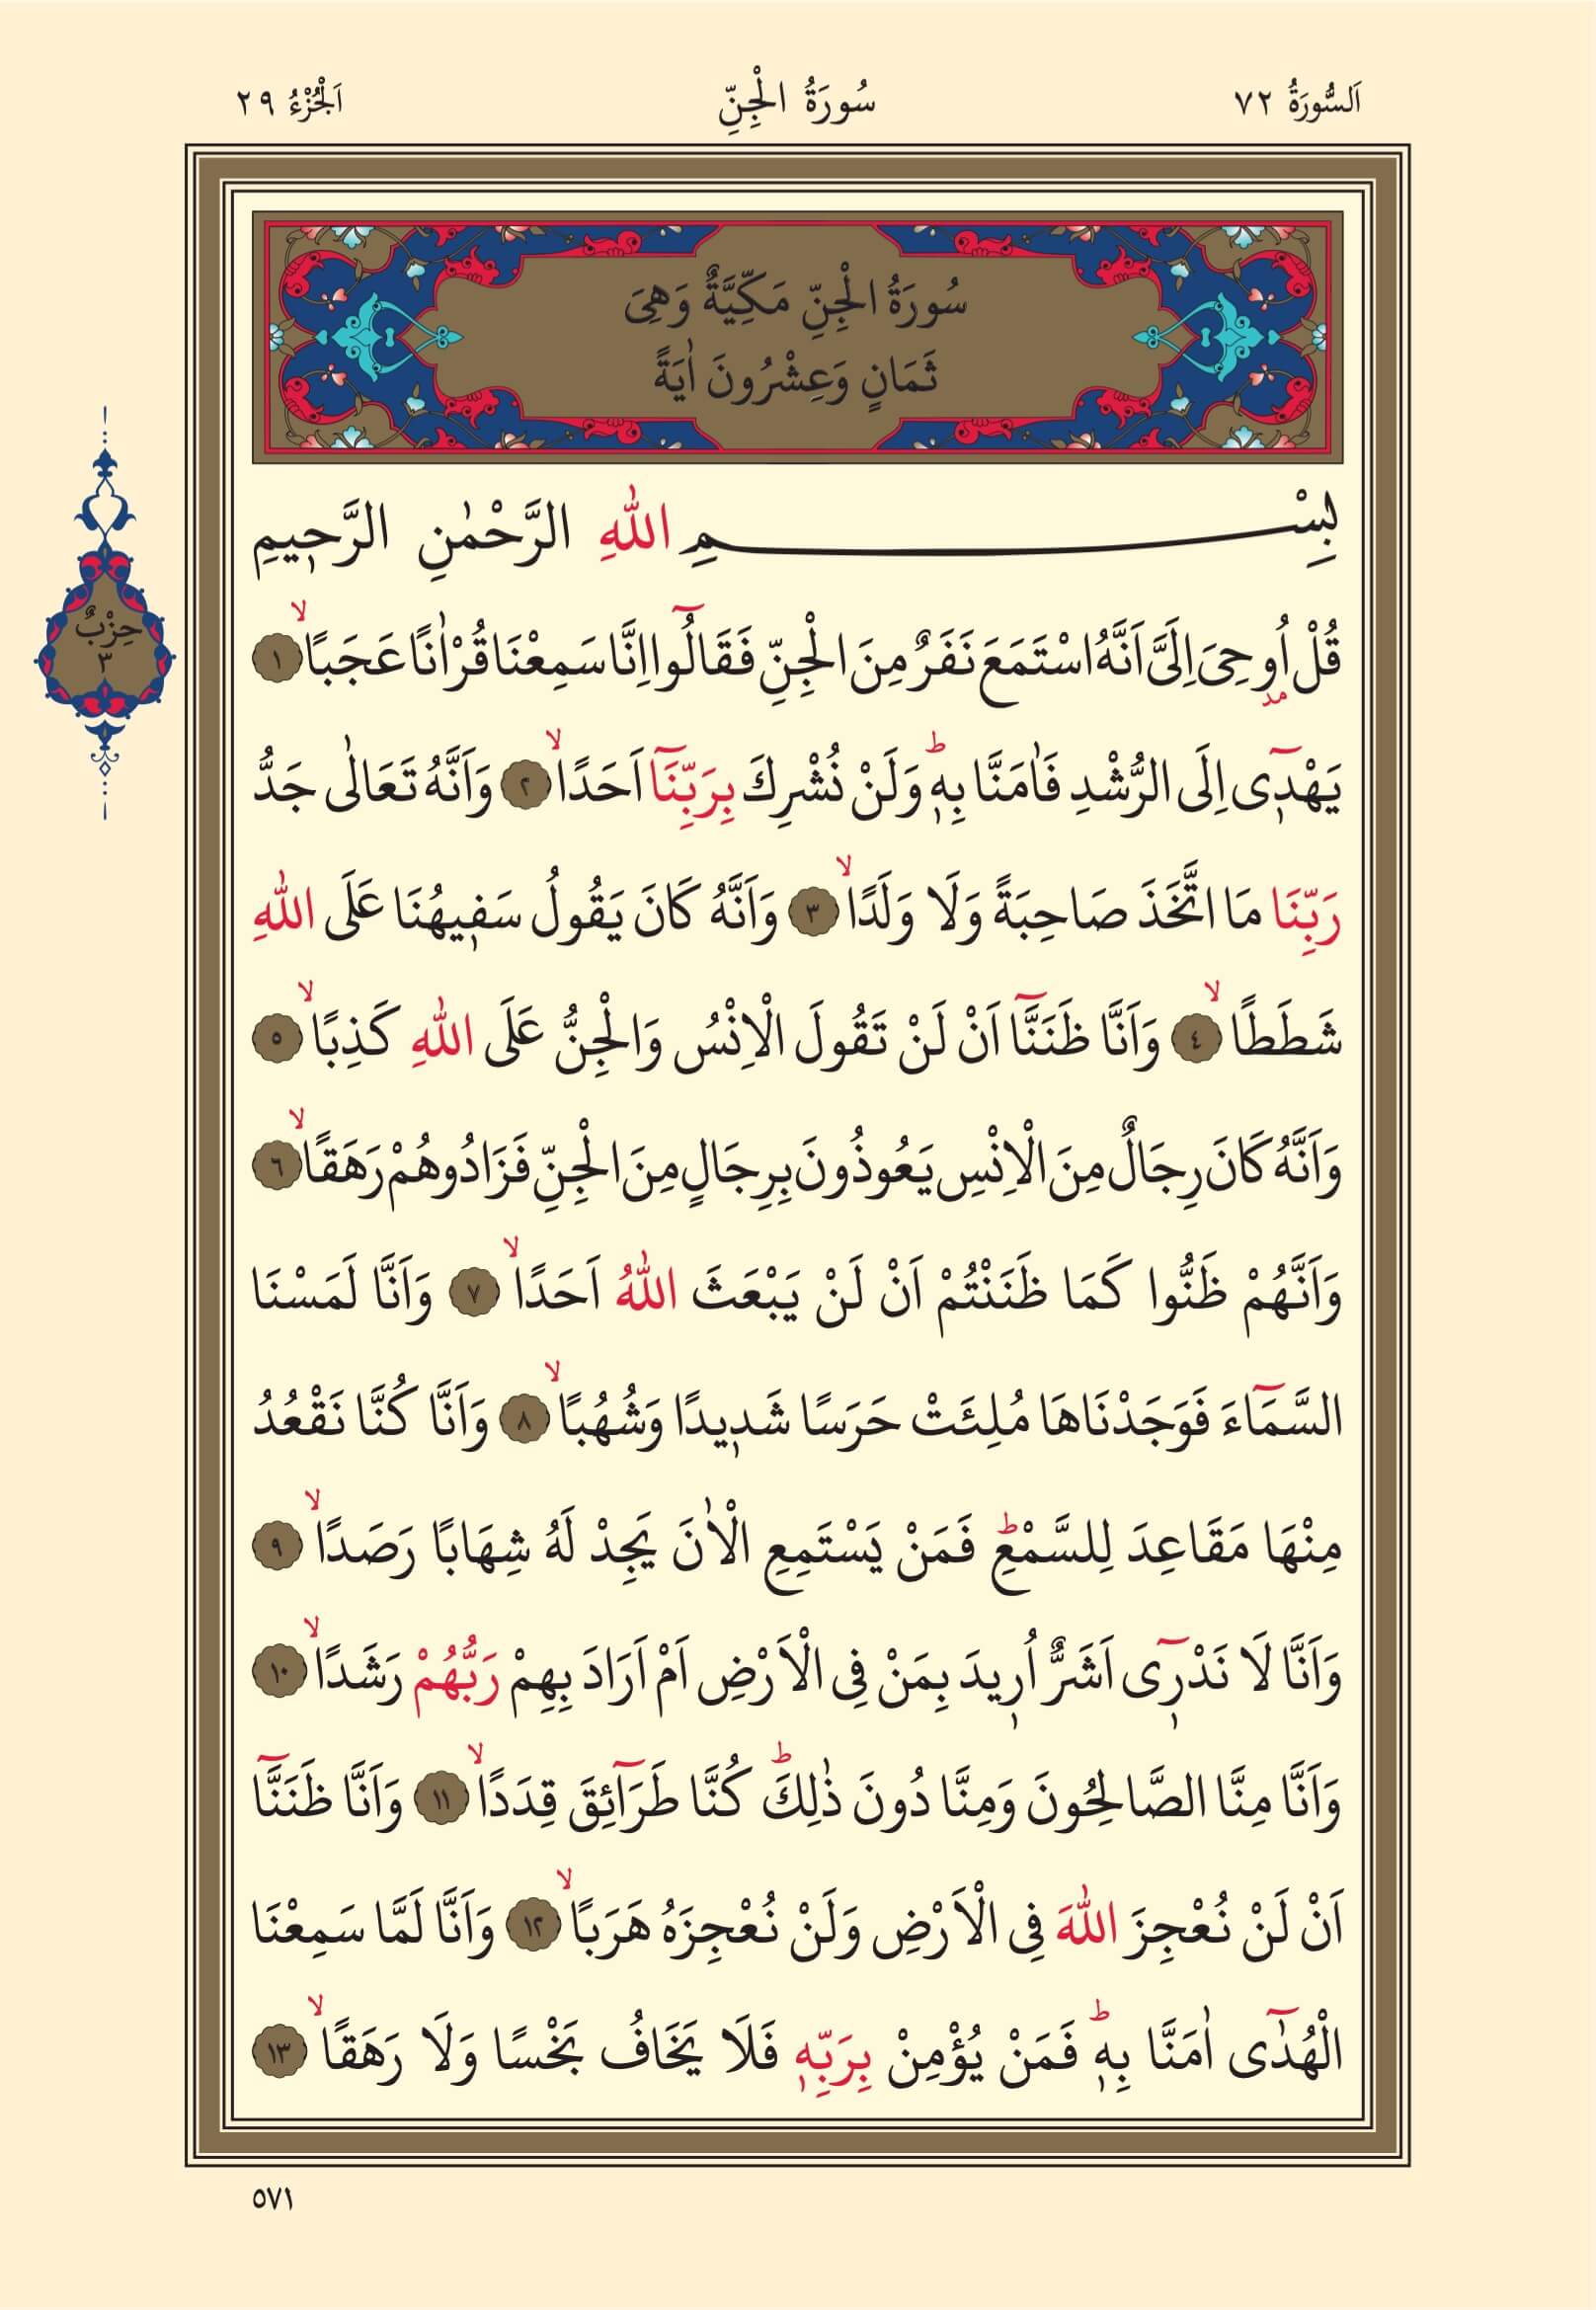 اَلسُّورَةُ ٧٢
سُورَةُ الْجِنِّ
اَلْجُزْءُ ٢٩
سُورَةُ الْجِنِّ مَكِّيَّةٌ وَهِىَ
ثَمَانٍ وَعِشْرُونَ اٰيَةً
حِزْبٌ
٣
بِسْمِ اللّٰهِ الرَّحْمٰنِ الرَّح۪يمِ
قُلْ اُو۫حِىَ اِلَىَّ اَنَّهُ اسْتَمَعَ نَفَرٌ مِنَ الْجِنِّ فَقَالُٓوا اِنَّا سَمِعْنَا قُرْاٰنًا عَجَبًاۙ ﴿١﴾
يَهْد۪ٓى اِلَى الرُّشْدِ فَاٰمَنَّا بِه۪ۜ وَلَنْ نُشْرِكَ بِرَبِّنَٓا اَحَدًاۙ ﴿٢﴾ وَاَنَّهُ تَعَالٰى جَدُّ
رَبِّنَا مَا اتَّخَذَ صَاحِبَةً وَلَا وَلَدًاۙ ﴿٣﴾ وَاَنَّهُ كَانَ يَقُولُ سَف۪يهُنَا عَلَى اللّٰهِ
شَطَطًاۙ ﴿٤﴾ وَاَنَّا ظَنَنَّٓا اَنْ لَنْ تَقُولَ الْاِنْسُ وَالْجِنُّ عَلَى اللّٰهِ كَذِبًاۙ ﴿٥﴾
وَاَنَّهُ كَانَ رِجَالٌ مِنَ الْاِنْسِ يَعُوذُونَ بِرِجَالٍ مِنَ الْجِنِّ فَزَادُوهُمْ رَهَقًاۙ ﴿٦﴾
وَاَنَّهُمْ ظَنُّوا كَمَا ظَنَنْتُمْ اَنْ لَنْ يَبْعَثَ اللّٰهُ اَحَدًاۙ ﴿٧﴾ وَاَنَّا لَمَسْنَا
السَّمَٓاءَ فَوَجَدْنَاهَا مُلِئَتْ حَرَسًا شَد۪يدًا وَشُهُبًاۙ ﴿٨﴾ وَاَنَّا كُنَّا نَقْعُدُ
مِنْهَا مَقَاعِدَ لِلسَّمْعِۜ فَمَنْ يَسْتَمِعِ الْاٰنَ يَجِدْ لَهُ شِهَابًا رَصَدًاۙ ﴿٩﴾
وَاَنَّا لَا نَدْر۪ٓى اَشَرٌّ اُر۪يدَ بِمَنْ فِى الْاَرْضِ اَمْ اَرَادَ بِهِمْ رَبُّهُمْ رَشَدًاۙ ﴿١٠﴾
وَاَنَّا مِنَّا الصَّالِحُونَ وَمِنَّا دُونَ ذٰلِكَۜ كُنَّا طَرَٓائِقَ قِدَدًاۙ ﴿١١﴾ وَاَنَّا ظَنَنَّٓا
اَنْ لَنْ نُعْجِزَ اللّٰهَ فِى الْاَرْضِ وَلَنْ نُعْجِزَهُ هَرَبًاۙ ﴿١٢﴾ وَاَنَّا لَمَّا سَمِعْنَا
الْهُدٰٓى اٰمَنَّا بِه۪ۜ فَمَنْ يُؤْمِنْ بِرَبِّه۪ فَلَا يَخَافُ بَخْسًا وَلَا رَهَقًاۙ ﴿١٣﴾
٥٧١